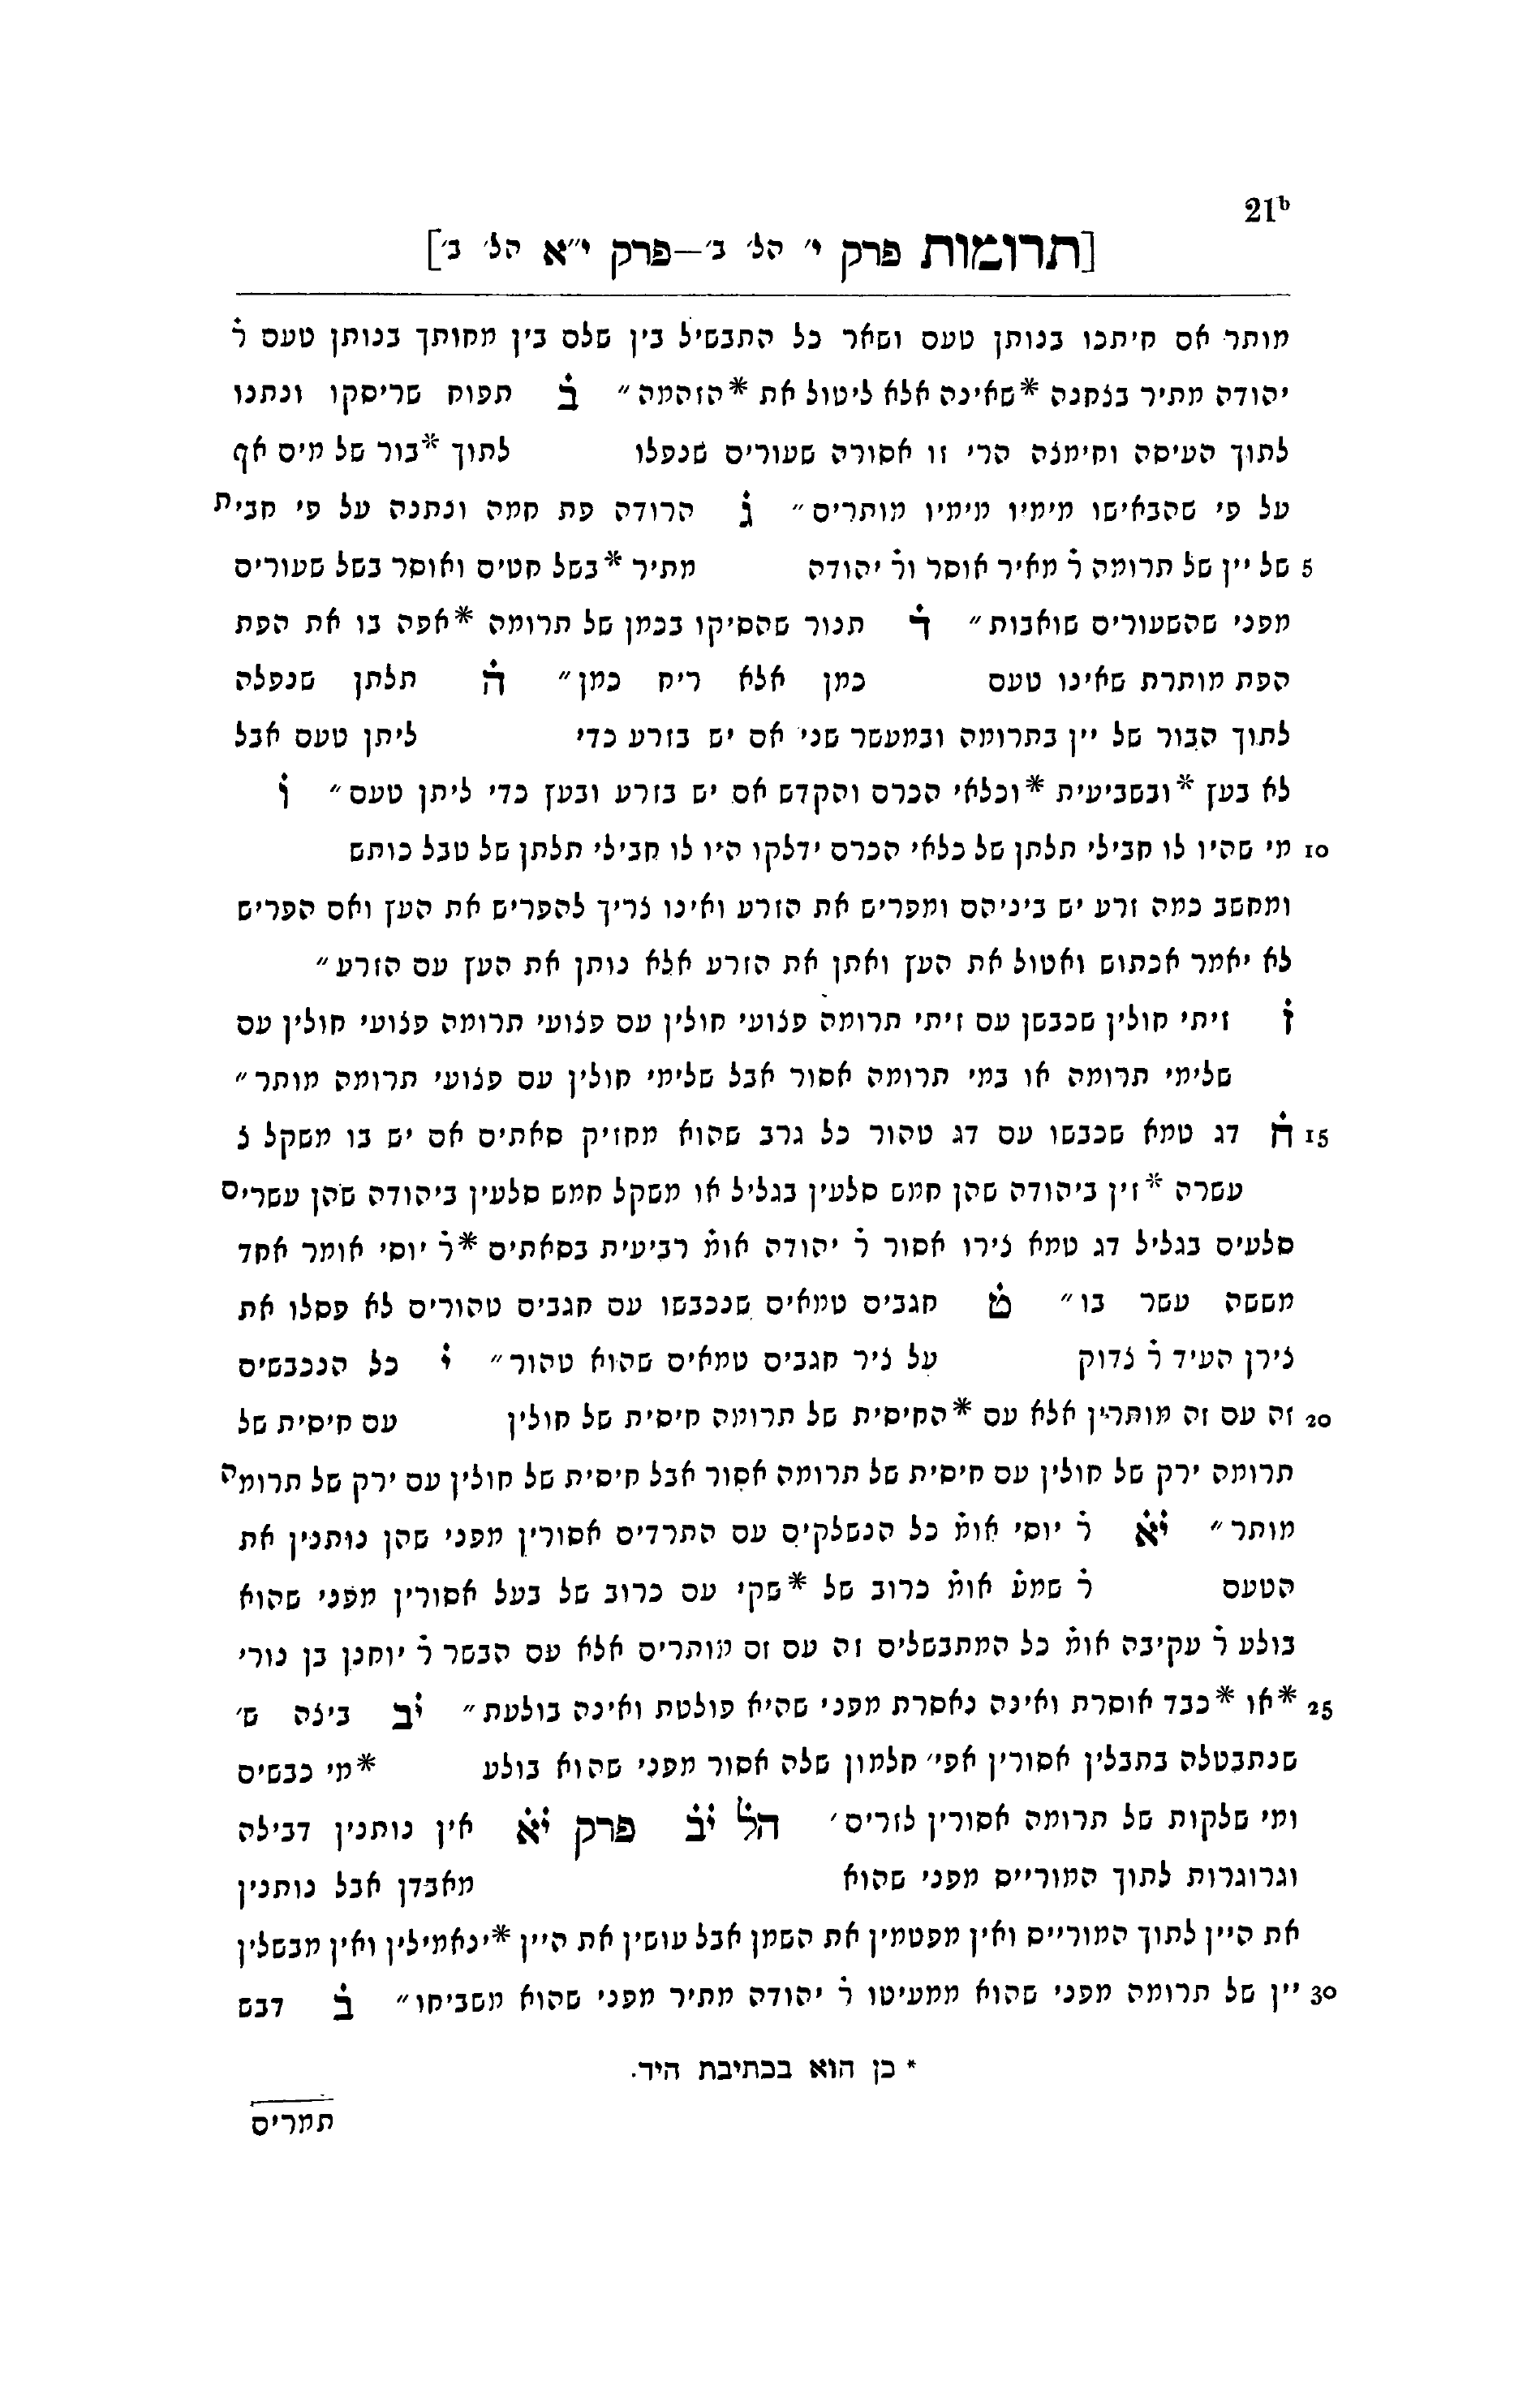 21ᵇ
[תרומות פרק י׳ הל׳ ב׳—פרק י״א הל׳ ב׳]
מותר אם חיתכו בנותן טעם ושאר כל התבשיל בין שלם בין מחותך בנותן טעם ר̇
יהודה מתיר בצחנה *שאינה אלא ליטול את *הזהמה״ ב̇ תפוח שריסקו ונתנו
לתוך העיסה וחימצה הרי זו אסורה שעורים שנפלו לתוך *בור של מים אף
על פי שהבאישו מימיו מימיו מותרים״ ג̇ הרודה פת חמה ונתנה על פי חבית
5 של יין של תרומה ר̇ מאיר אוסר ור̇ יהודה מתיר *בשל חטים ואוסר בשל שעורים
מפני שהשעורים שואבות״ ד̇ תנור שהסיקו בכמן של תרומה *אפה בו את הפת
הפת מותרת שאינו טעם כמן אלא ריח כמן״ ה̇ תלתן שנפלה
לתוך הבור של יין בתרומה ובמעשר שני אם יש בזרע כדי ליתן טעם אבל
לא בעץ *ובשביעית *וכלאי הכרם והקדש אם יש בזרע ובעץ כדי ליתן טעם״ ו̇
10 מי שהיו לו חבילי תלתן של כלאי הכרם ידלקו היו לו חבילי תלתן של טבל כותש
ומחשב כמה זרע יש ביניהם ומפריש את הזרע ואינו צריך להפריש את העץ ואם הפריש
לא יאמר אכתוש ואטול את העץ ואתן את הזרע אלא נותן את העץ עם הזרע״
ז̇ זיתי חולין שכבשן עם זיתי תרומה פצועי חולין עם פצועי תרומה פצועי חולין עם
שלימי תרומה או במי תרומה אסור אבל שלימי חולין עם פצועי תרומה מותר״
15 ח̇ דג טמא שכבשו עם דג טהור כל גרב שהוא מחזיק סאתים אם יש בו משקל צ
עשרה *זין ביהודה שהן חמש סלעין בגליל או משקל חמש סלעין ביהודה שהן עשרים
סלעים בגליל דג טמא צירו אסור ר̇ יהודה אומ̇ רביעית בסאתים *ר̇ יוסי אומר אחד
מששה עשר בו״ ט̇ חגבים טמאים שנכבשו עם חגבים טהורים לא פסלו את
צירן העיד ר̇ צדוק על ציר חגבים טמאים שהוא טהור״ י̇ כל הנכבשים
20 זה עם זה מותרין אלא עם *החיסית של תרומה חיסית של חולין עם חיסית של
תרומה ירק של חולין עם חיסית של תרומה אסור אבל חיסית של חולין עם ירק של תרומה
מותר״ י̇א̇ ר̇ יוסי אומ̇ כל הנשלקים עם התרדים אסורין מפני שהן נותנין את
הטעם ר̇ שמע̇ אומ̇ כרוב של *שקי עם כרוב של בעל אסורין מפני שהוא
בולע ר̇ עקיבה אומ̇ כל המתבשלים זה עם זם מותרים אלא עם הבשר ר̇ יוחנן בן נורי
25 *או *כבד אוסרת ואינה נאסרת מפני שהיא פולטת ואינה בולעת״ י̇ב ביצה ש׳
שנתבטלה בתבלין אסורין אפי׳ חלמון שלה אסור מפני שהוא בולע *מי כבשים
ומי שלקות של תרומה אסורין לזרים׳ הל̇ י̇ב̇ פרק י̇א̇ אין נותנין דבילה
וגרוגרות לתוך המוריים מפני שהוא מאבדן אבל נותנין
את היין לתוך המוריים ואין מפטמין את השמן אבל עושין את היין *ינאמילין ואין מבשלין
30 יין של תרומה מפני שהוא ממעיטו ר̇ יהודה מתיר מפני שהוא משביחו״ ב̇ דבש
* כן הוא בכתיבת היד.
תמרים